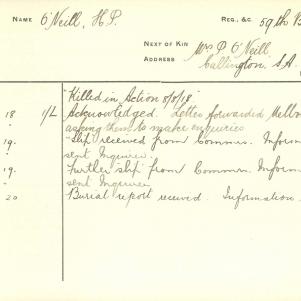 NAME O'Neill, H.P. REG., &C. 59th B
NEXT OF KIN Mrs P O'Neill,
ADDRESS Callington, S.A.
"Killed in Action 8/8/18"
18 1/L Acknowledged. Letter forwarded Melbo
asking them to make enquiries
19. "Slip received from Commrs. Inform
sent Inquirer.
19. Further slip from Commrs. Inform
sent Inquirer
20 Burial report received. Information